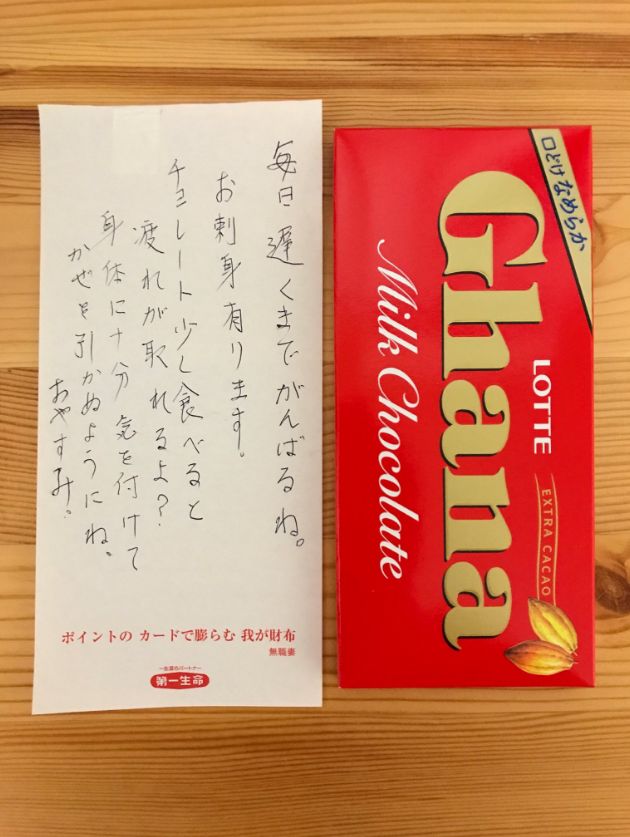 毎日遅くまでがんばるね。
お刺身有ります。
チョコレート少し食べると
疲れが取れるよ?
身体に十分気を付けて
かぜを引かぬようにね、
おやすみ。
ポイントの カードで膨らむ 我が財布
無職妻
一生涯のパートナー
第一生命
口どけなめらか
Ghana
Milk Chocolate
LOTTE
EXTRA CACAO